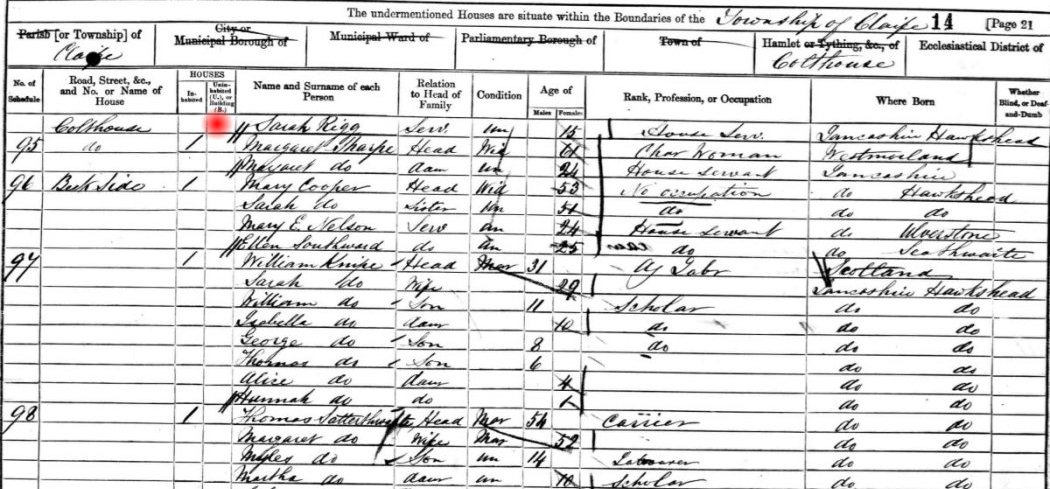 The undermentioned Houses are situate within the Boundaries of the Township of Claife 14 [Page 21
Parish [or Township] of Claife City or Municipal Borough of Municipal Ward of Parliamentary Borough of Town of Hamlet or Tything, &c., of Colthouse Ecclesiastical District of
No. of Schedule Road, Street, &c., and No. or Name of House HOUSES Inhabited Uninhabited (U.), or Building (B.) Name and Surname of each Person Relation to Head of Family Condition Age of Males Females Rank, Profession, or Occupation Where Born Whether Blind, or Deaf-and-Dumb
Colthouse Sarah Rigg Serv un 15 House Serv. Lancashire Hawkshead
95 do 1 Margaret Tharpe Head Wid 61 Char Woman Westmorland
Margaret do daur un 24 House Servant Lancashire
96 Beck Side 1 Mary Cooper Head Wid 53 No occupation do Hawkshead
Sarah do Sister Un 51 do do do
Mary E. Nelson Serv un 24 House Servant do Ulverstone
Ellen Southward do un 25 do do Seathwaite
97 1 William Knipe Head Mar 31 Ag Labr Scotland
Sarah do Wife 29 Lancashire Hawkshead
William do Son 11 Scholar do do
Isabella do daur 10 do do do
George do Son 8 do do do
Thomas do Son 6 do do
Alise do daur 4 do do
Hannah do do 1 do do
98 1 Thomas Satterthwaite Head Mar 54 Carrier do do
Margaret do Wife Mar 52 do do
Myles do Son un 14 Labourer do do
Martha do daur un 10 Scholar do do